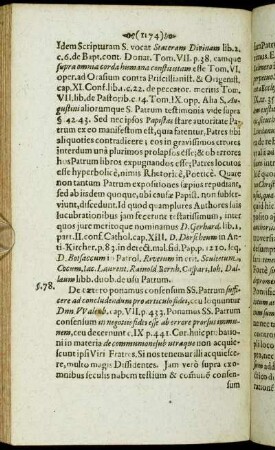 (1174)
Idem Scripturam S. vocat Stateram Divinam lib. 2.
c. 6. de Bapt. cont. Donat. Tom. VII. p. 38. eamque
supra omnia corda humana constitutam esse Tom. VI.
oper. ad Orasium contra Priscillianist. & Origenist.
cap. XI. Conf. lib. 2. c. 22. de peccator. meritis Tom.
VII. lib. de Pastorib. c. 14. Tom. IX. opp. Alia S. Au-
gustini aliorumque S. Patrum testimonia vide supra
§. 42. 43. Sed nec ipsos Papistas stare autoritate Pa-
trum ex eo manifestum est, qua fatentur, Patres ubi
aliquoties contradicere; eos in gravissimos errores
interdum unà plurimos prolapsos esse; & ob errores
hos Patrum libros expugnandos esse; Patres locutos
esse hyperbolicè, nimis Rhetoricè, Poëticè. Quare
non tantum Patrum expositiones sæpius repudiant,
sed ab iisdem quoque, ubi causæ Papali non subser-
viunt, discedunt. Id quod amplures Authores suis
lucubrationibus jam fecerunt testatissimum, inter
quos jure meritoque nominamus D. Gerhard. lib. 1.
part. II. conf. Cathol. cap. XIII. D. Dorscheum in An-
ti-Kircher. p. 83. in detect. mal. fid. Papp. 1210. seq.
D. Botsaccum in Patrol. Rivetum in crit. Scultetum,
Cocum, Jac. Laurent. Rainold. Bernh. Caspari, Joh. Dal-
læum libb. duob. de usu Patrum.
§. 78. De cætero ponamus consensum SS. Patrum suffi-
cere ad concludendum pro articulo fidei, ceu loquuntur
Dnn VValenb. cap. VII. p. 433. Ponamus SS. Patrum
consensum in negotio fidei esse ab errore prorsus immu-
nem, ceu decernunt c. IX. p. 441. Cur huic proba-
ni in materia de communione sub utraque non acqui-
escunt ipsi Viri Fratres. Si nos tenemur illi acquiesce-
re, multo magis Dissidentes. Jam verò supra exo-
mnibus seculis nabem testium & comunē consen-
sum